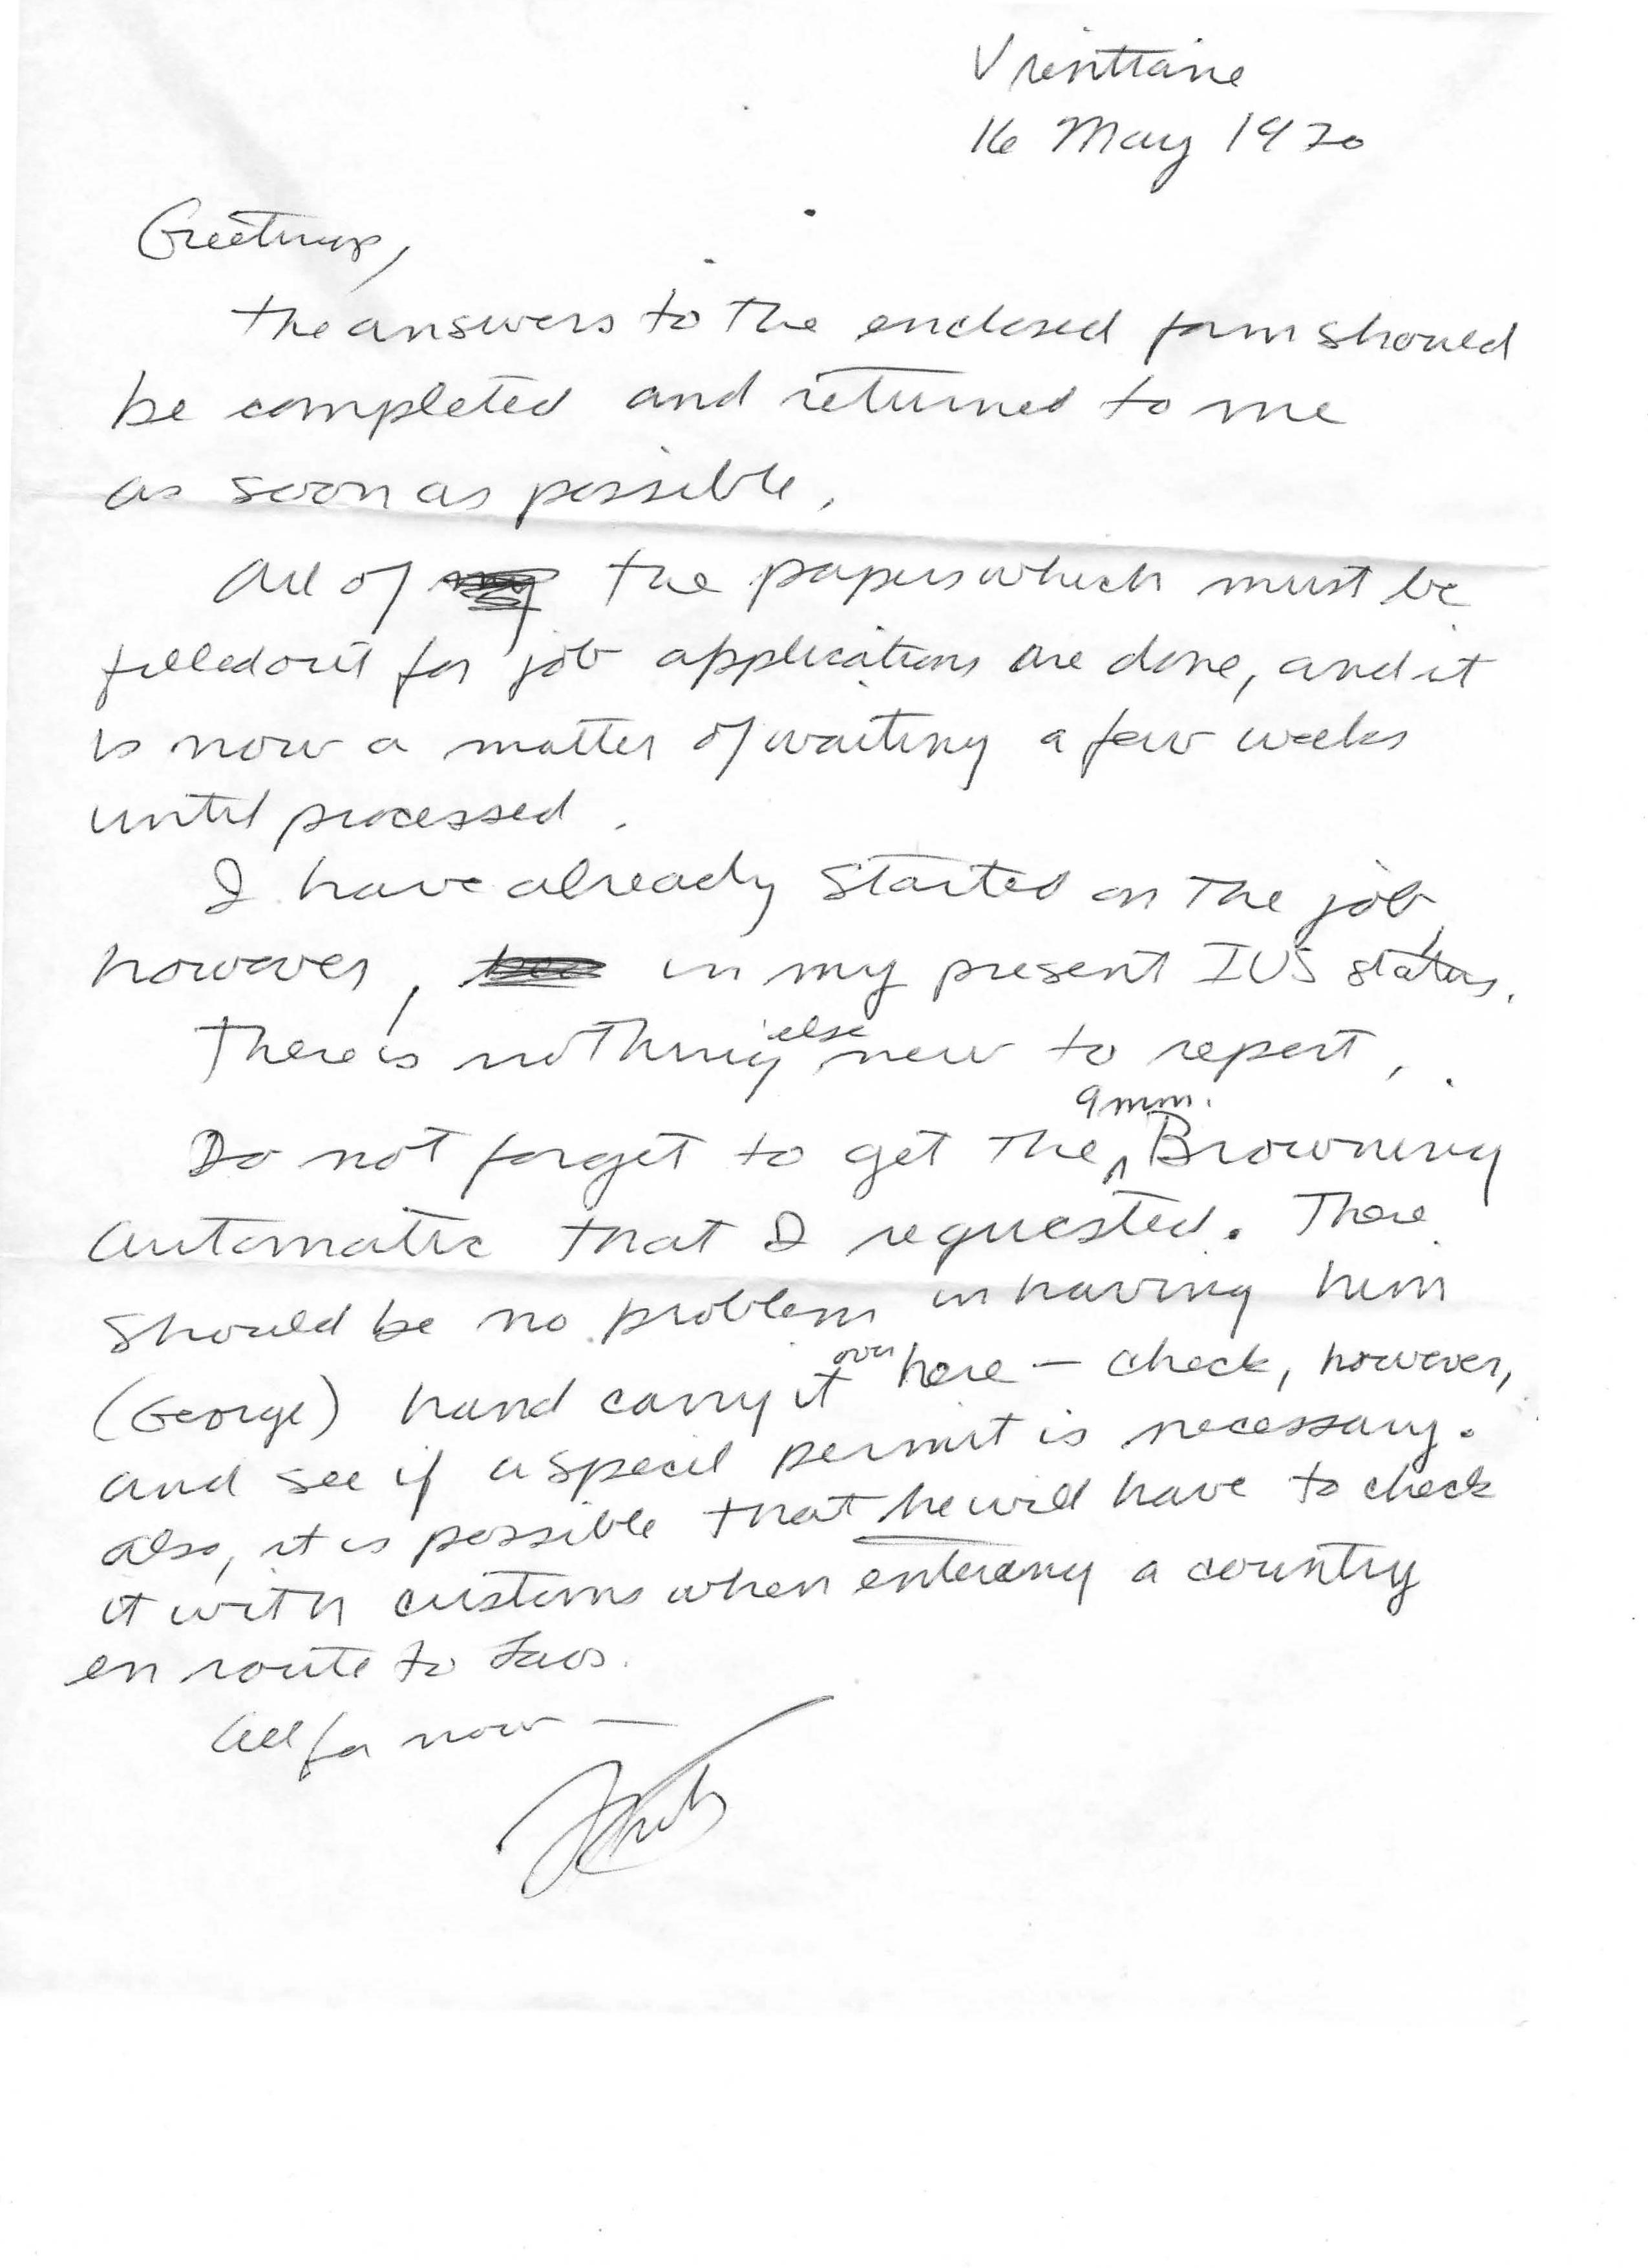 Vientiane
16 May 1970
Greetings,
The answers to the enclosed form should
be completed and returned to me
as soon as possible.
All of the papers which must be
filled out for job applications are done, and it
is now a matter of waiting a few weeks
until processed.
I have already started on the job,
however, in my present IVS status.
There is nothing else new to report.
Do not forget to get the 9mm. Browning
Automatic that I requested. There
should be no problem in having him
(George) hand carry it over here — check, however,
and see if a special permit is necessary.
Also, it is possible that he will have to check
it with customs when entering a country
en route to Laos.
All for now —